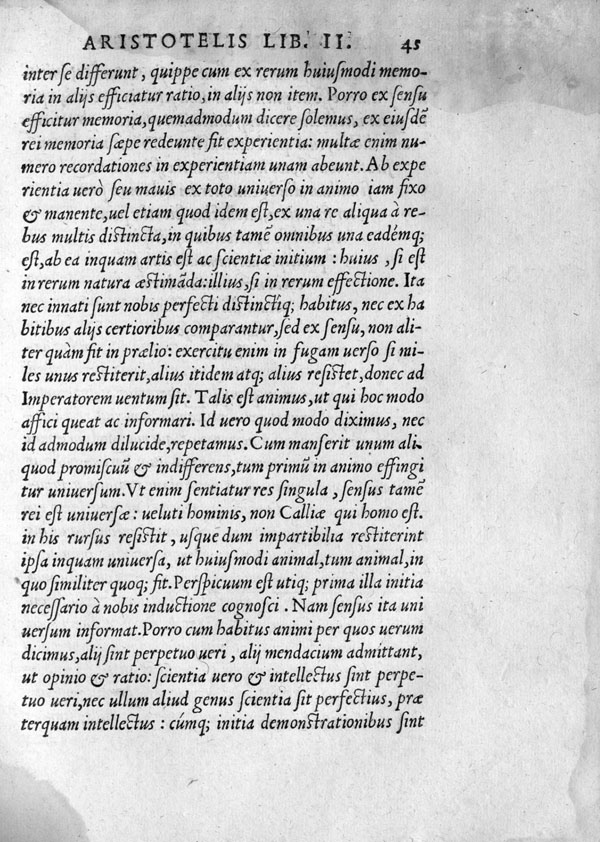 ARISTOTELIS LIB. II. 45
inter se differunt, quippe cum ex rerum huiusmodi memo-
ria in alijs efficiatur ratio, in alijs non item. Porro ex sensu
efficitur memoria, quemadmodum dicere solemus, ex eiusdē
rei memoria sæpe redeunte fit experientia: multæ enim nu-
mero recordationes in experientiam unam abeunt. Ab expe
rientia uerò seu mauis ex toto uniuerso in animo iam fixo
& manente, uel etiam quod idem est, ex una re aliqua à re-
bus multis distincta, in quibus tamē omnibus una eadémq;
est, ab ea inquam artis est ac scientiæ initium: huius, si est
in rerum natura æstimāda: illius, si in rerum effectione. Ita
nec innati sunt nobis perfecti distinctíq; habitus, nec ex ha
bitibus alijs certioribus comparantur, sed ex sensu, non ali-
ter quàm fit in prælio: exercitu enim in fugam uerso si mi-
les unus restiterit, alius itidem atq; alius resistet, donec ad
Imperatorem uentum sit. Talis est animus, ut qui hoc modo
affici queat ac informari. Id uero quod modo diximus, nec
id admodum dilucide, repetamus. Cum manserit unum ali-
quod promiscuū & indifferens, tum primū in animo effingi
tur uniuersum. Vt enim sentiatur res singula, sensus tamē
rei est uniuersæ: ueluti hominis, non Calliæ qui homo est.
in his rursus resistit, usque dum impartibilia restiterint
ipsa inquam uniuersa, ut huiusmodi animal, tum animal, in
quo similiter quoq; fit. Perspicuum est utiq; prima illa initia
necessario à nobis inductione cognosci. Nam sensus ita uni
uersum informat. Porro cum habitus animi per quos uerum
dicimus, alij sint perpetuo ueri, alij mendacium admittant,
ut opinio & ratio: scientia uero & intellectus sint perpe-
tuo ueri, nec ullum aliud genus scientia sit perfectius, præ
terquam intellectus: cúmq; initia demonstrationibus sint